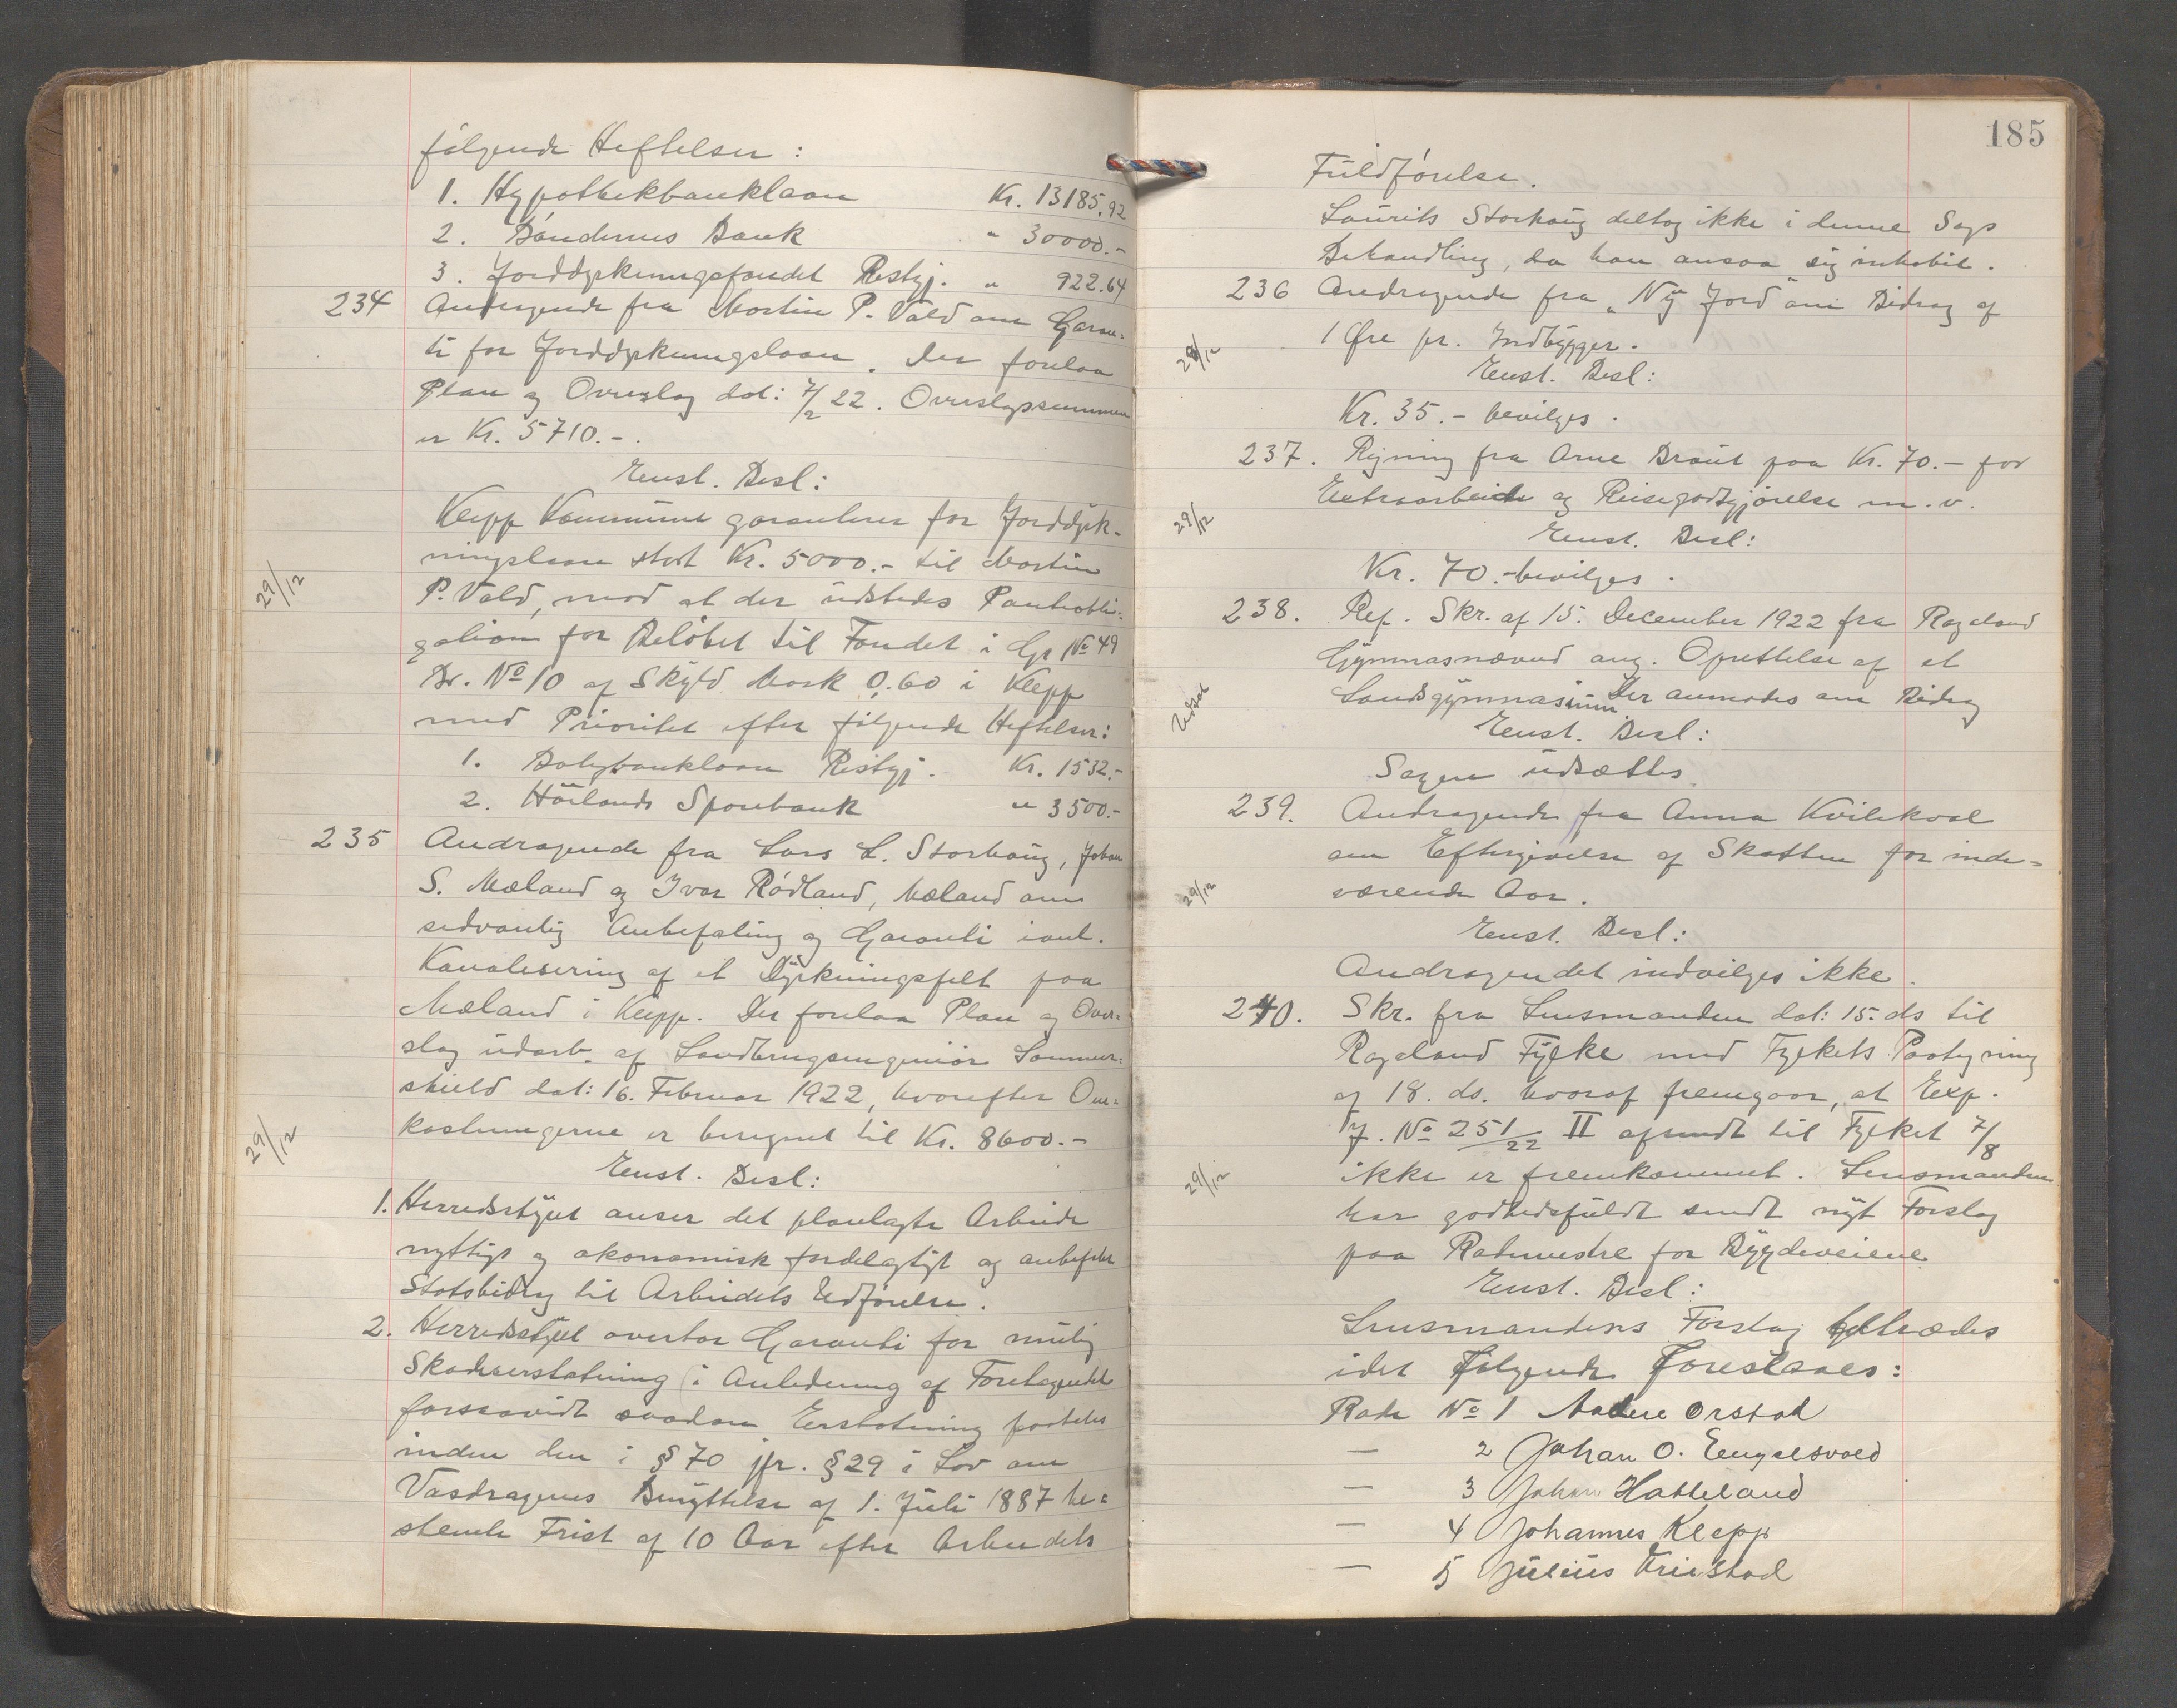 følgende Heftelser :
1. Hypothekbanklaan Kr. 13185,92
2. Bøndernes Bank " 30000.-
3. Jorddyrkningsfondet Restgj. " 922.64
234 Andragende fra Martin P. Vold om Garan-
ti for Jorddyrkningslaan. Der forelaa
Plan og Overslag dat: 7/2 22. Overslagssummen
er Kr. 5710.-.
Enst. Besl:
Klepp Kommune garanterer for Jorddyrk-
ningslaan stort Kr. 5000.- til Martin
29/12
P. Vold, mod at der udstedes Pantobli-
gation for Beløbet til Fondet i Gr No 49
Br. No 10 af Skyld Mark 0,60 i Klepp
med Prioritet efter følgende Heftelser:
1. Boligbanklaan Restgj. Kr. 1532.-
2. Haülands Sparebank " 3500.-
235 Andragende fra Lars L. Storhaüg, Johan
S. Mæland og Ivar Rødland, Mæland om
sedvanlig Anbefaling og Garanti i anl.
Kanalisering af et Dyrkningsfelt paa
Mæland i Klepp. Der forelaa Plan og Over-
slag üdarb. af Landbrugsingeniør Sommer-
skield dat: 16. Februar 1922, hvorefter Om-
kostningerne er beregnet til Kr. 8600.-
29/12
Enst. Besl:
1. Herredsstyret anser det planlagte Arbeide
nyttigt og økonomisk fordelagtigt og anbefaler
Statsbidrag til Arbeidets Udførelse.
2. Herredsstyret overtar Garanti for mülig
Skadeserstatning i Anledning af Foretagendet
forsaavidt saadan Erstatning paatales
inden den i § 70 jfr. § 29 i Lov om
Vasdragenes Benyttelse af 1. Jüli 1887 be-
stemte Frist af 10 Aar efter Arbeidets
185
Füldførelse.
Laürits Storhaüg deltog ikke i denne Sags
Behandling, da han ansaa sig inhabil.
236 Andragende fra "Ny Jord" om Bidrag af
1 Øre pr. Indbygger.
29/12
Enst. Besl:
Kr. 35.- bevilges.
237. Regning fra Arne Braüt paa Kr. 70.- for
Extraarbeide og Reisegodtgjørelse m. v.
29/12
Enst. Besl:
Kr. 70.- bevilges.
238. Ref. Skr. af 15. December 1922 fra Rogaland
Gymnasnævnd ang. Oprettelse af et
Landsgymnasium. Der anmodes om Bidrag
Udsat
Enst. Besl:
Sagen üdsættes.
239. Andragende fra Anna Kvilekval
om Eftergivelse af Skatten for inde-
29/12
værende Aar.
Enst. Besl:
Andragendet indvilges ikke.
240. Skr. fra Lensmanden dat: 15. ds til
Rogaland Fylke med Fylkets Paategning
af 18. ds. hvoraf fremgaar, at Exp.
J. No 251/22 II afsendt til Fylket 7/8
29/12
ikke er fremkommet. Lensmanden
har godhedsfüldt sendt nyt Forslag
paa Rodemestre for Bygdeveiene
Enst. Besl:
Lensmandens Forslag tiltrædes
idet følgende foreslaaes:
Rode No 1 Orstad
— 2 Johan O. Engelsvold
— 3 Johan Hatteland
— 4 Johannes Klepp
— 5 Jülius Friestad